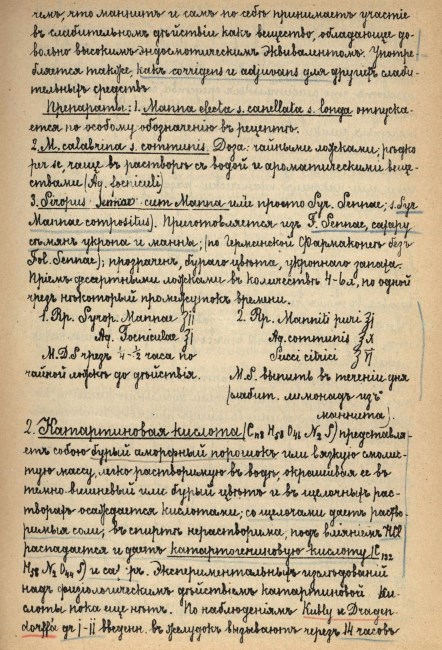 чемъ, что маннитъ и самъ по себѣ принимаетъ участіе
въ слабительномъ дѣйствіи какъ вещество, обладающее до-
вольно высокимъ эндосмотическимъ эквивалентомъ. Употре-
бляется также, какъ corrigens и adjuvans для другихъ слаби-
тельныхъ средствъ
Препараты: 1. Manna electa s. canellata s. longa отпуска-
ется по особому обозначенію въ рецептѣ.
2. M. calabrina s. communis. Доза: чайными ложками; рѣдко
per se, чаще въ растворѣ съ водой и ароматическими веще-
ствами (Aq. foeniculi)
3. Siropus Sennae cum Manna или просто Syr. Sennae; s. Syr.
Mannae compositus). Приготовляется изъ F. Sennae, сахару,
сѣмянъ укропа и манны; (по Германской Фармакопеѣ безъ
Fol. Sennae); прозраченъ, бураго цвѣта, укропнаго запаха.
Пріемъ десертными ложками въ количествѣ 4-6 л, по одной
чрезъ некоторый промежутокъ времени.
1. Rp. Syrop. Mannae ʒii
Aq. Foeniculae ʒi
M.D.S чрезъ ¼-½ часа по
чайной ложкѣ до дѣйствія.
2. Rp. Manniti puri ʒi
Aq. communis ʒx
Succi citrici ʒvi
M.S. выпить въ теченіи дня
(слабит. лимонадъ изъ
маннита).
2. Катартиновая кислота (C₁₇₈ H₅₈ O₄₆ N₂ S) представля-
етъ собою бурый аморфный порошокъ или вязкую смолис-
тую массу, легко растворимую въ водѣ, окрашивая ее въ
темно-вишневый или бурый цвѣтъ и въ щелочныхъ рас-
творахъ осаждается кислотами; со щелочами даетъ раство-
римыя соли; въ спиртѣ нерастворима; подъ вліяніемъ HCl
распадается и даетъ катартогениновую кислоту (C₁₃₂
H₅₈ N₂ O₄₄ S) и сах. гр. Экспериментальныхъ изслѣдованій
надъ физіологическимъ дѣйствіемъ катартиновой ки-
слоты пока еще нѣтъ. По наблюденіямъ Kubly и Dragen-
dorff'a gr i-ii введен. въ желудокъ вызываютъ черезъ 14 часовъ